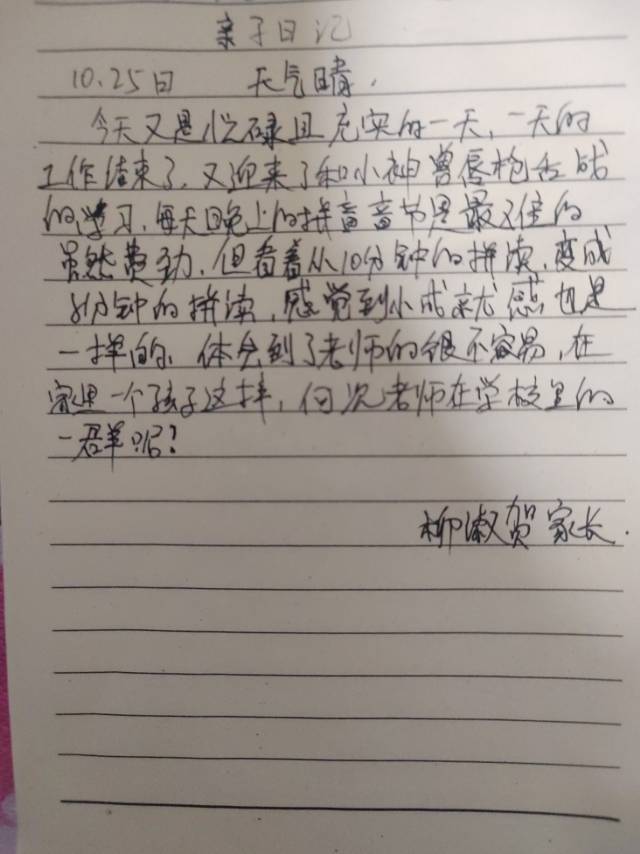 亲子日记
10.25日 天气晴.
今天又是忙碌且充实的一天,一天的
工作结束了,又迎来了和小神兽唇枪舌战
的学习,每天晚上的拼音音节是最难的
虽然费劲,但看着从10分钟的拼读,变成
8分钟的拼读,感觉到小成就感也是
一样的 体会到了老师的很不容易,在
家里一个孩子这样,何次老师在学校里的
一群呢?
柳淑贺家长.